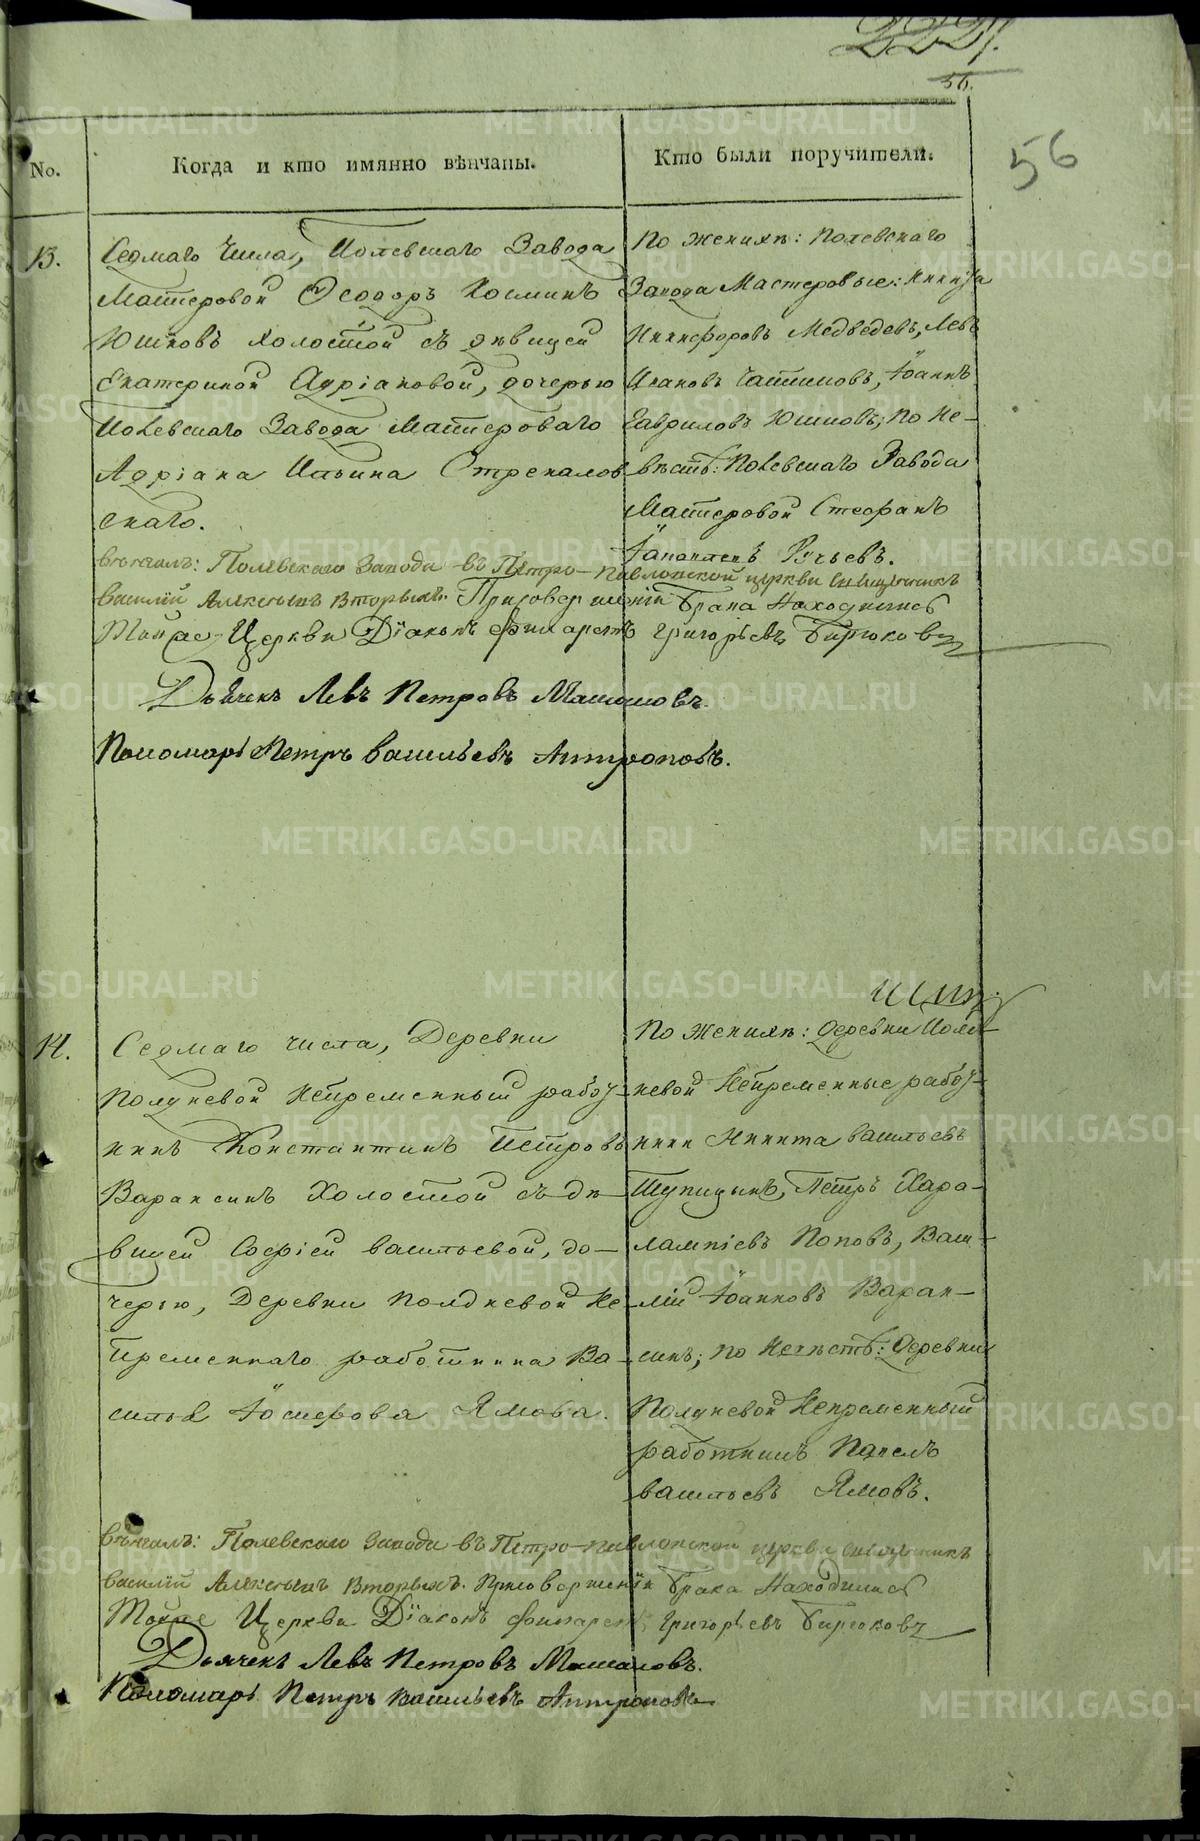 56.
56
No.
Когда и кто имянно вѣнчаны.
Кто были поручители.
13.
Седмаго числа, Полевскаго Завода
Мастеровой Ѳеодоръ Косминъ
Юшковъ холостой съ дѣвицей
Екатериной Адріановой, дочерью
Полевскаго Завода Мастероваго
Адріана Ильина Стрекалов
скаго.
По женихѣ: Полевскаго
Завода Мастеровые: Никита
Никифоровъ Медведевъ, Левъ
Ивановъ Іоаннъ
Гавриловъ Юшковъ; по не-
вѣстѣ: Полевскаго Завода
Мастеровой Стефанъ
Ручьевъ.
Вѣнчалъ: Полевскаго Завода въ Петро-Павловской церкви священникъ
Василій Алексѣевъ Вторыхъ. При совершеніи брака находились
Тойже Церкви Діаконъ Филаретъ Григорьевъ Бирюковъ
Дьячекъ Левъ Петровъ Машановъ.
Пономарь Петръ Васильевъ Антроповъ.
14.
Седмаго числа, Деревни
Полдневой Непременный работ-
никъ Константинъ Петровъ
Вараксинъ Холостой съ дѣ-
вицей Софіей Васильевой, до-
черью, Деревни Полдневой Не-
пременнаго работника Ва-
силья Іосифова Ямова.
По женихѣ: Деревни Полд-
невой Непременные работ-
ники Никита Васильевъ
Шупицынъ, Петръ Хара-
лампіевъ Поповъ, Васи-
лій Іоанновъ Варак-
синъ; по невѣстѣ: Деревни
Полдневой Непременный
работникъ Павелъ
Васильевъ Ямовъ.
Вѣнчалъ: Полевскаго Завода въ Петро-Павловской церкви священникъ
Василій Алексѣевъ Вторыхъ. При совершеніи брака находились
Тойже Церкви Діаконъ Филаретъ Григорьевъ Бирюковъ
Дьячекъ Левъ Петровъ Машановъ.
Пономарь Петръ Васильевъ Антроповъ
METRIKI.GASO-URAL.RU